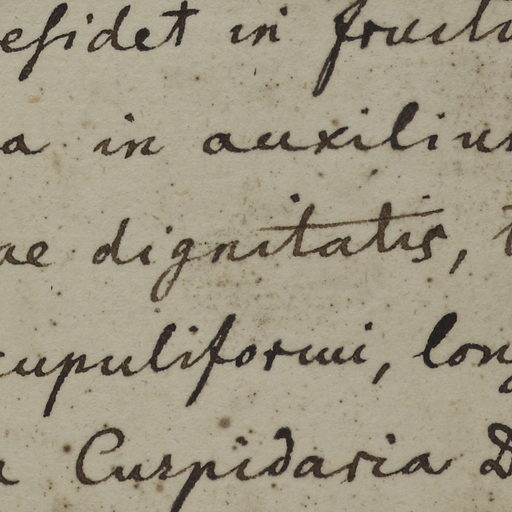 esidet in fructu
a in auxilium
ae dignitatis, t
cupuliformi, long
a Cuspidaria D